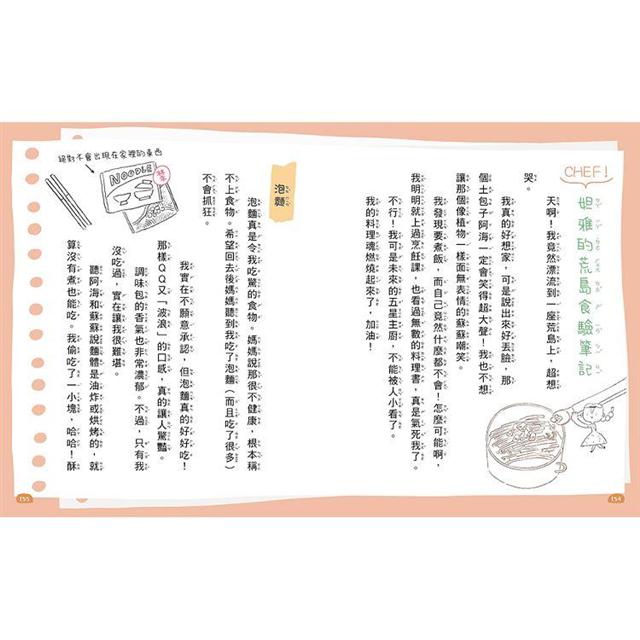 CHEF!
妲雅的荒島食驗筆記
天啊！我竟然漂流到一座荒島上，超想
哭。
我真的好想家，可是說出來好丟臉，那
個土包子阿海一定會笑得超大聲！我也不想
讓那個像植物一樣面無表情的蘇蘇嘲笑。
我發現要煮飯，而自己竟然什麼都不會！怎麼可能啊，
我明明就上過烹飪課，也看過無數的料理書，真是氣死我了。
不行！我可是未來的五星主廚，不能被人小看了。
我的料理魂燃燒起來了，加油！
154
泡麵
泡麵真是令我吃驚的食物。媽媽說那很不健康，根本稱
不上食物。希望回去後媽媽聽到我吃了泡麵（而且吃了很多）
不會抓狂。
我實在不願意承認，但泡麵真的好好吃！
那樣QQ又「波浪」的口感，真的讓人驚豔。
調味包的香氣也非常濃郁。不過，只有我
沒吃過，實在讓我很難堪。
聽阿海和蘇蘇說麵體是油炸或烘烤的，就
算沒有煮也能吃。我偷吃了一小塊，哈哈！酥
絕對不會出現在家裡的東西
NOODLE
155